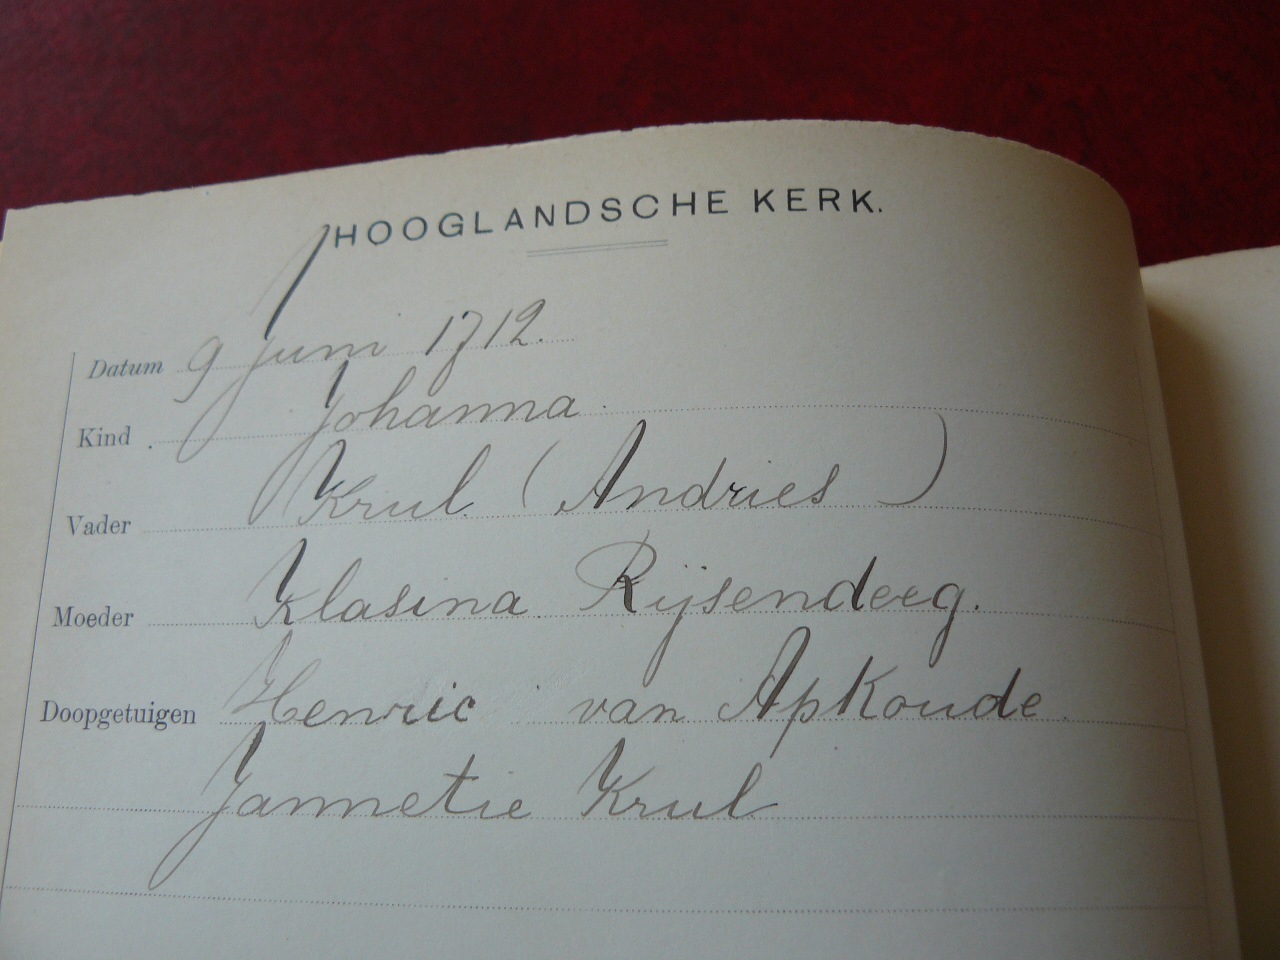 HOOGLANDSCHE KERK.
Datum 9 Juni 1712.
Kind Johanna
Vader Krul (Andries)
Moeder Klasina Rijsendeeg.
Doopgetuigen Henric van Apkoude
Jannetie Krul